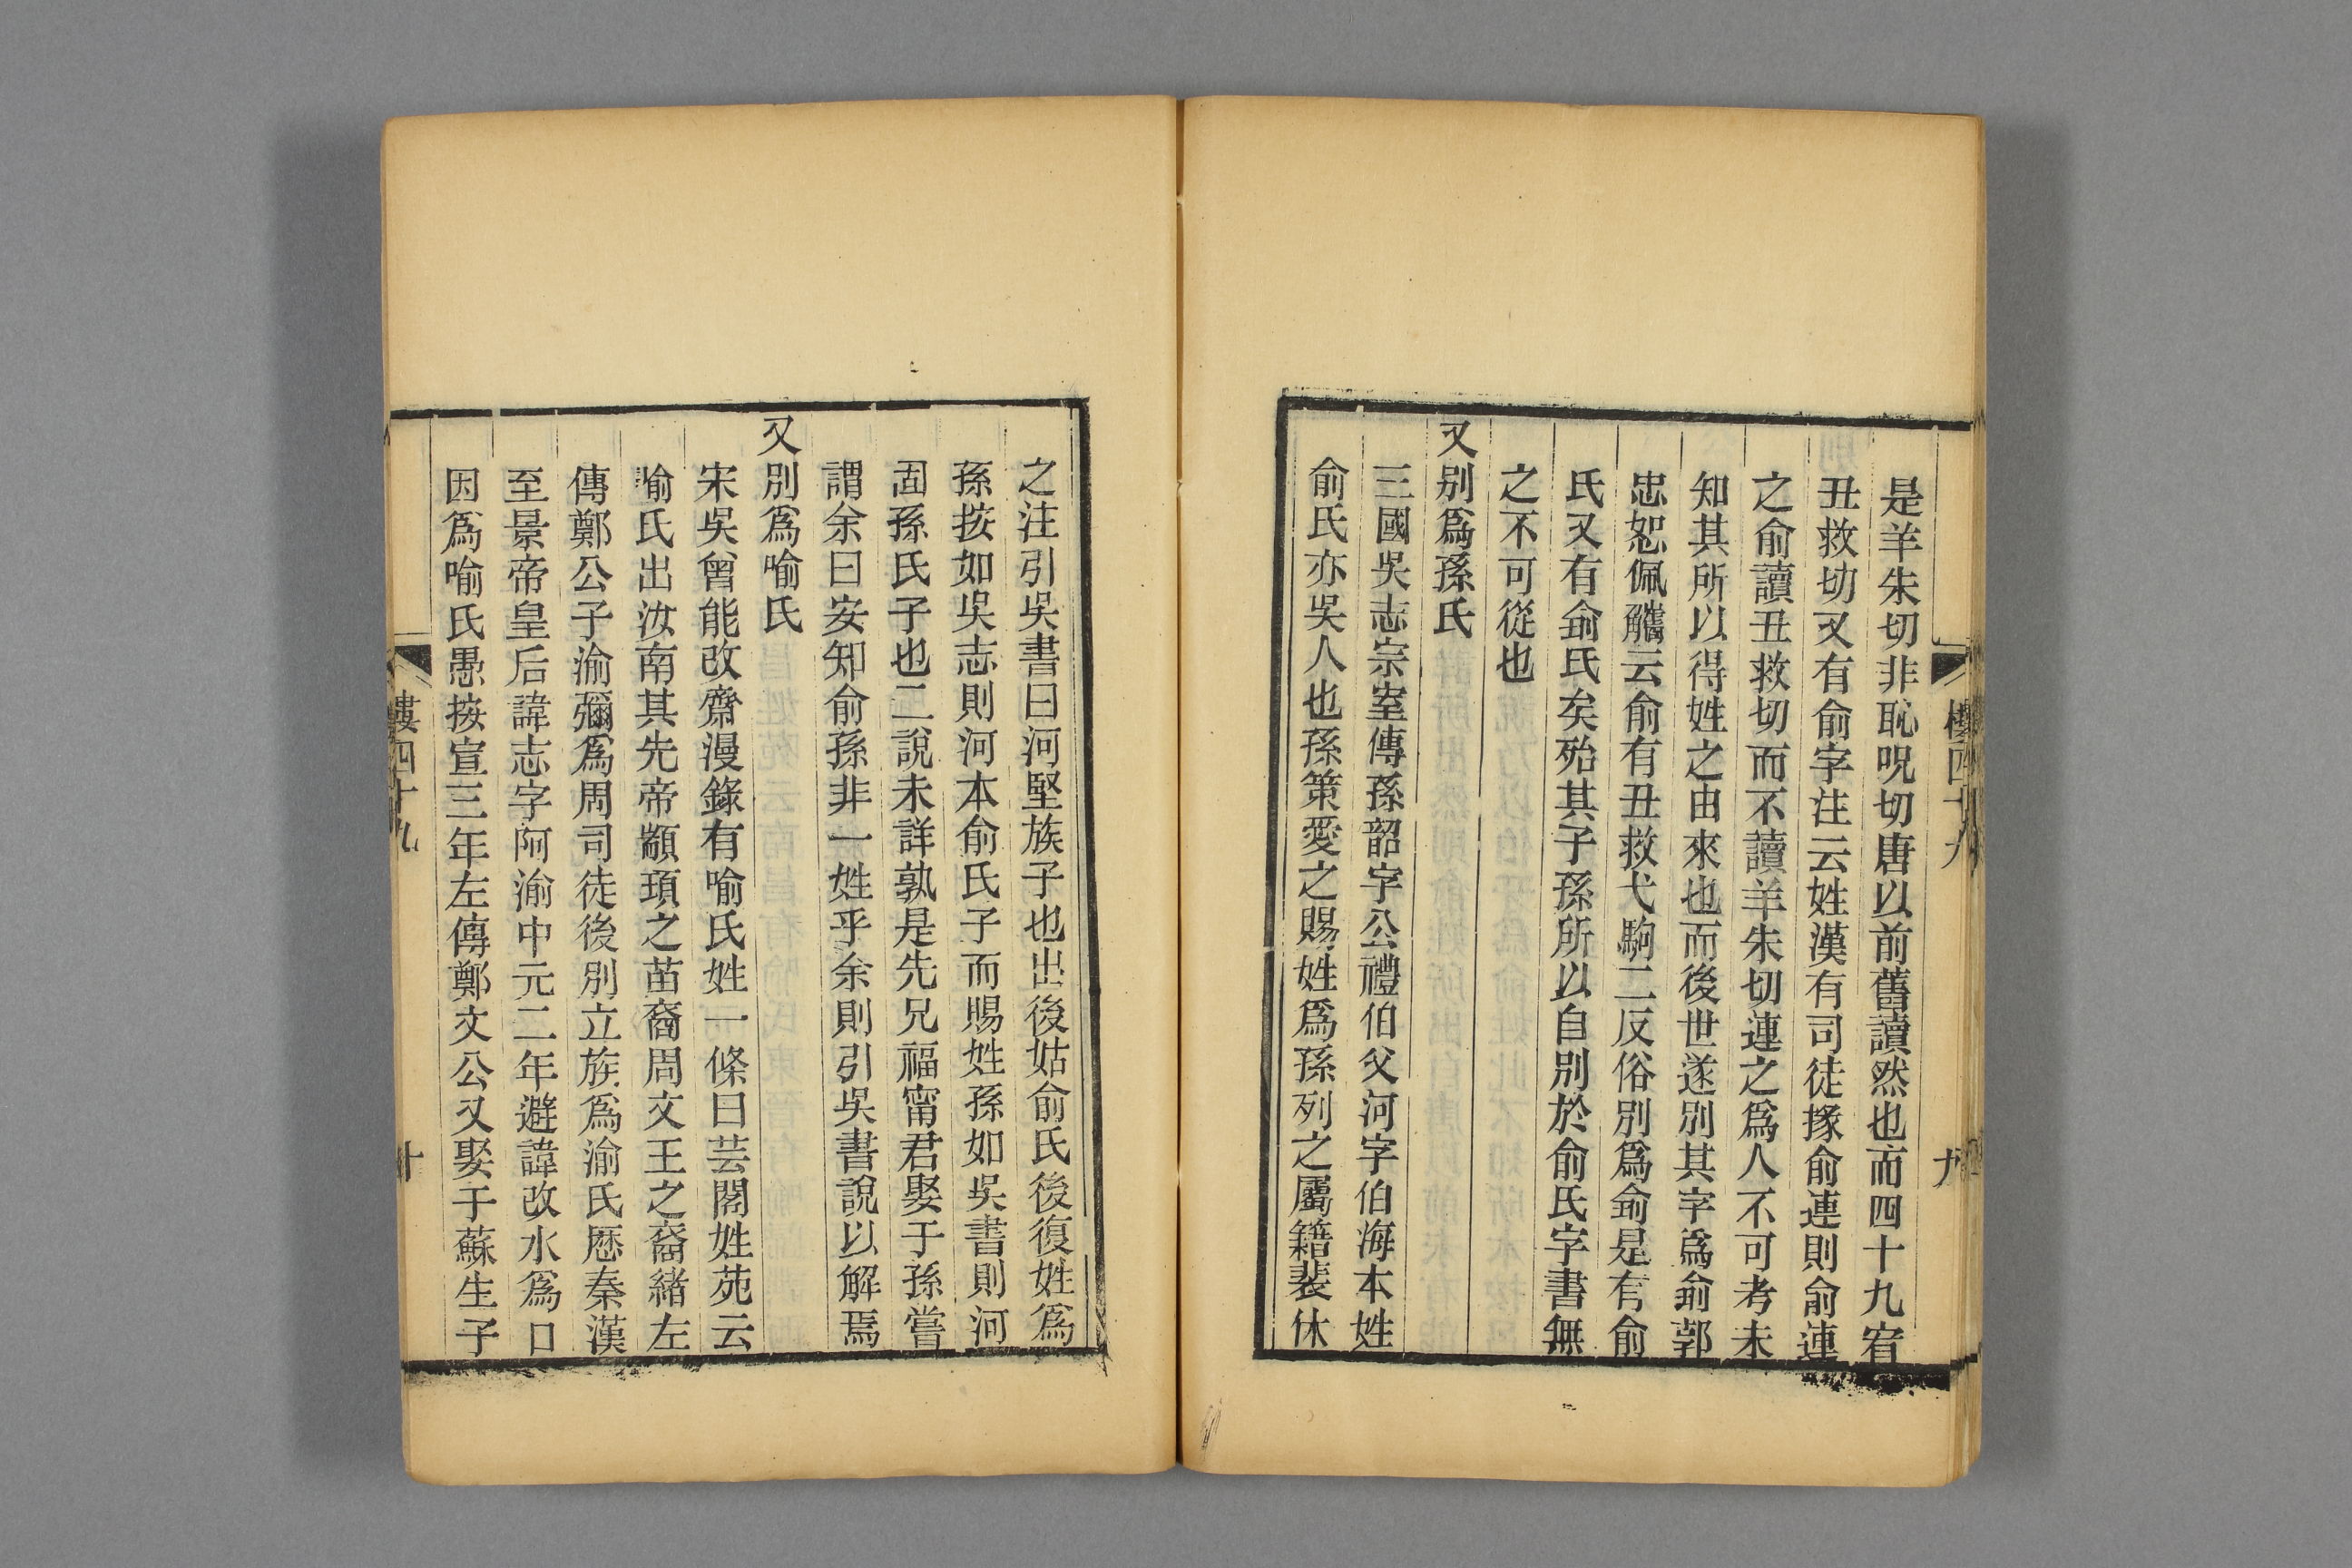 是羊朱切非恥呪切唐以前舊讀然也而四十九宥
丑救切又有俞字注云姓漢有司徒掾俞連則俞連
之俞讀丑救切而不讀羊朱切連之爲人不可考未
知其所以得姓之由來也而後世遂別其字爲俞郭
忠恕佩觿云俞有丑救弋駒二反俗別爲俞是有俞
氏又有俞氏矣殆其子孫所以自別於俞氏字書無
之不可從也
又別爲孫氏
三國吳志宗室傳孫韶字公禮伯父河字伯海本姓
俞氏亦吳人也孫策愛之賜姓爲孫列之屬籍裴休
之注引吳書曰河堅族子也出後姑俞氏後復姓爲
孫按如吳志則河本俞氏子而賜姓孫如吳書則河
固孫氏子也二說未詳孰是先兄福甯君娶于孫嘗
謂余曰安知俞孫非一姓乎余則引吳書說以解焉
又別爲喻氏
宋吳曾能改齋漫錄有喻氏姓一條曰芸閣姓苑云
喻氏出汝南其先帝顓頊之苗裔周文王之裔緒左
傳鄭公子渝彌爲周司徒後別立族爲渝氏歷秦漢
至景帝皇后諱志字阿渝中元二年避諱改水爲口
因爲喻氏愚按宣三年左傳鄭文公又娶于蘇生子
樓四十九
十